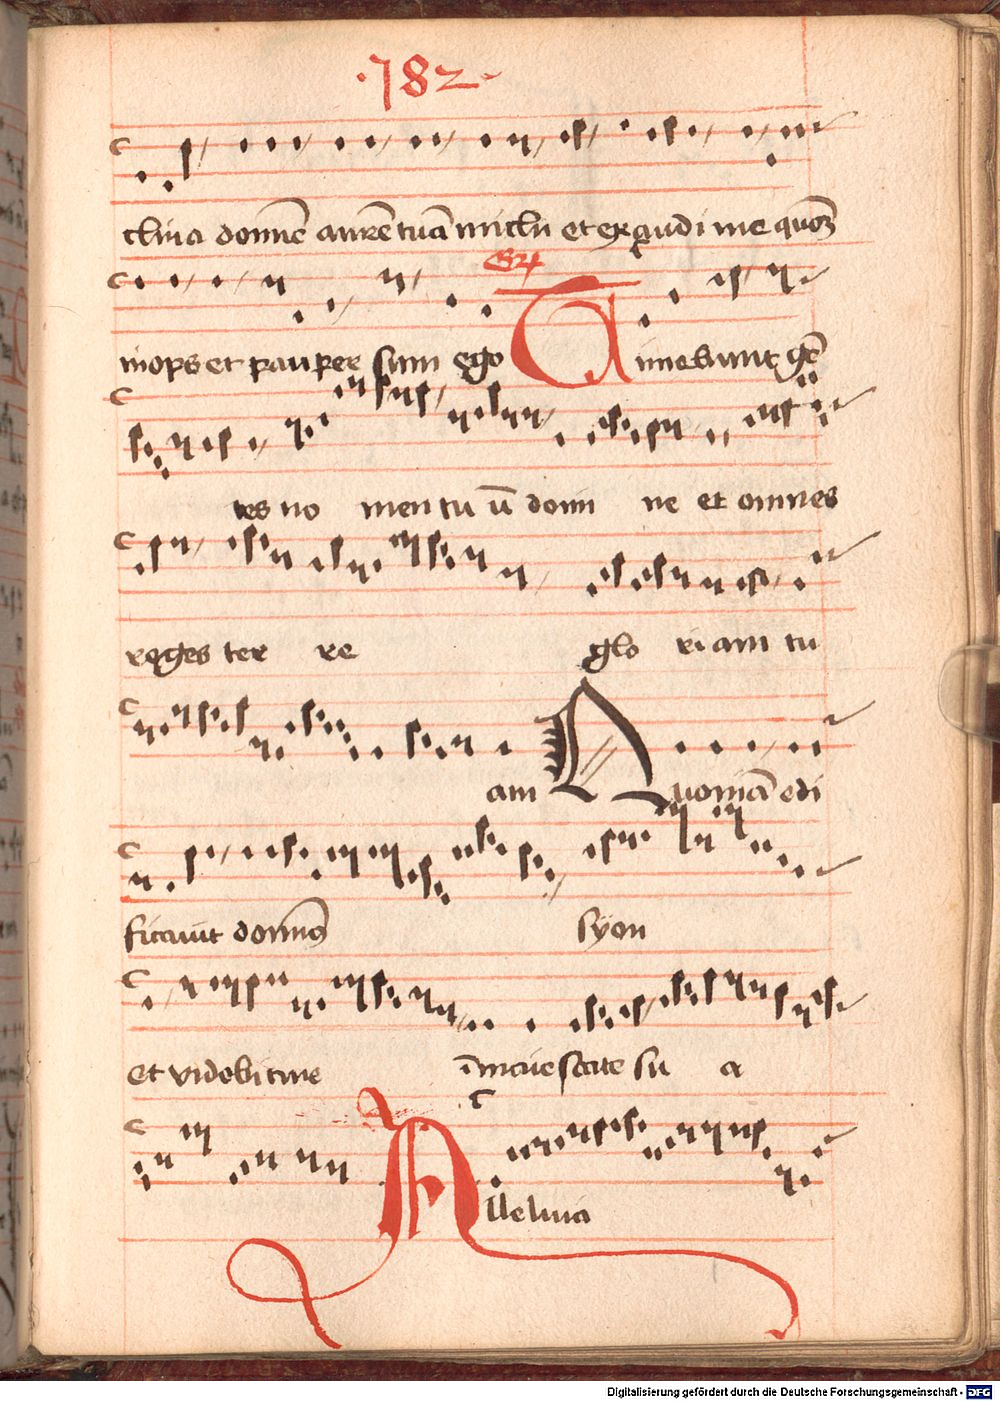 ·182·
clina domine aurē tuā michi et exaudi me quoꝫ
Gr
inops et pauper sum ego Timebunt gē
tes no men tu ū domi ne et omnes
reges ter re glo riam tu
am Quoniā edi
ficauit domin9 syon
et videbitur ī maiestate su a
Alleluia
Digitalisierung gefördert durch die Deutsche Forschungsgemeinschaft - DFG